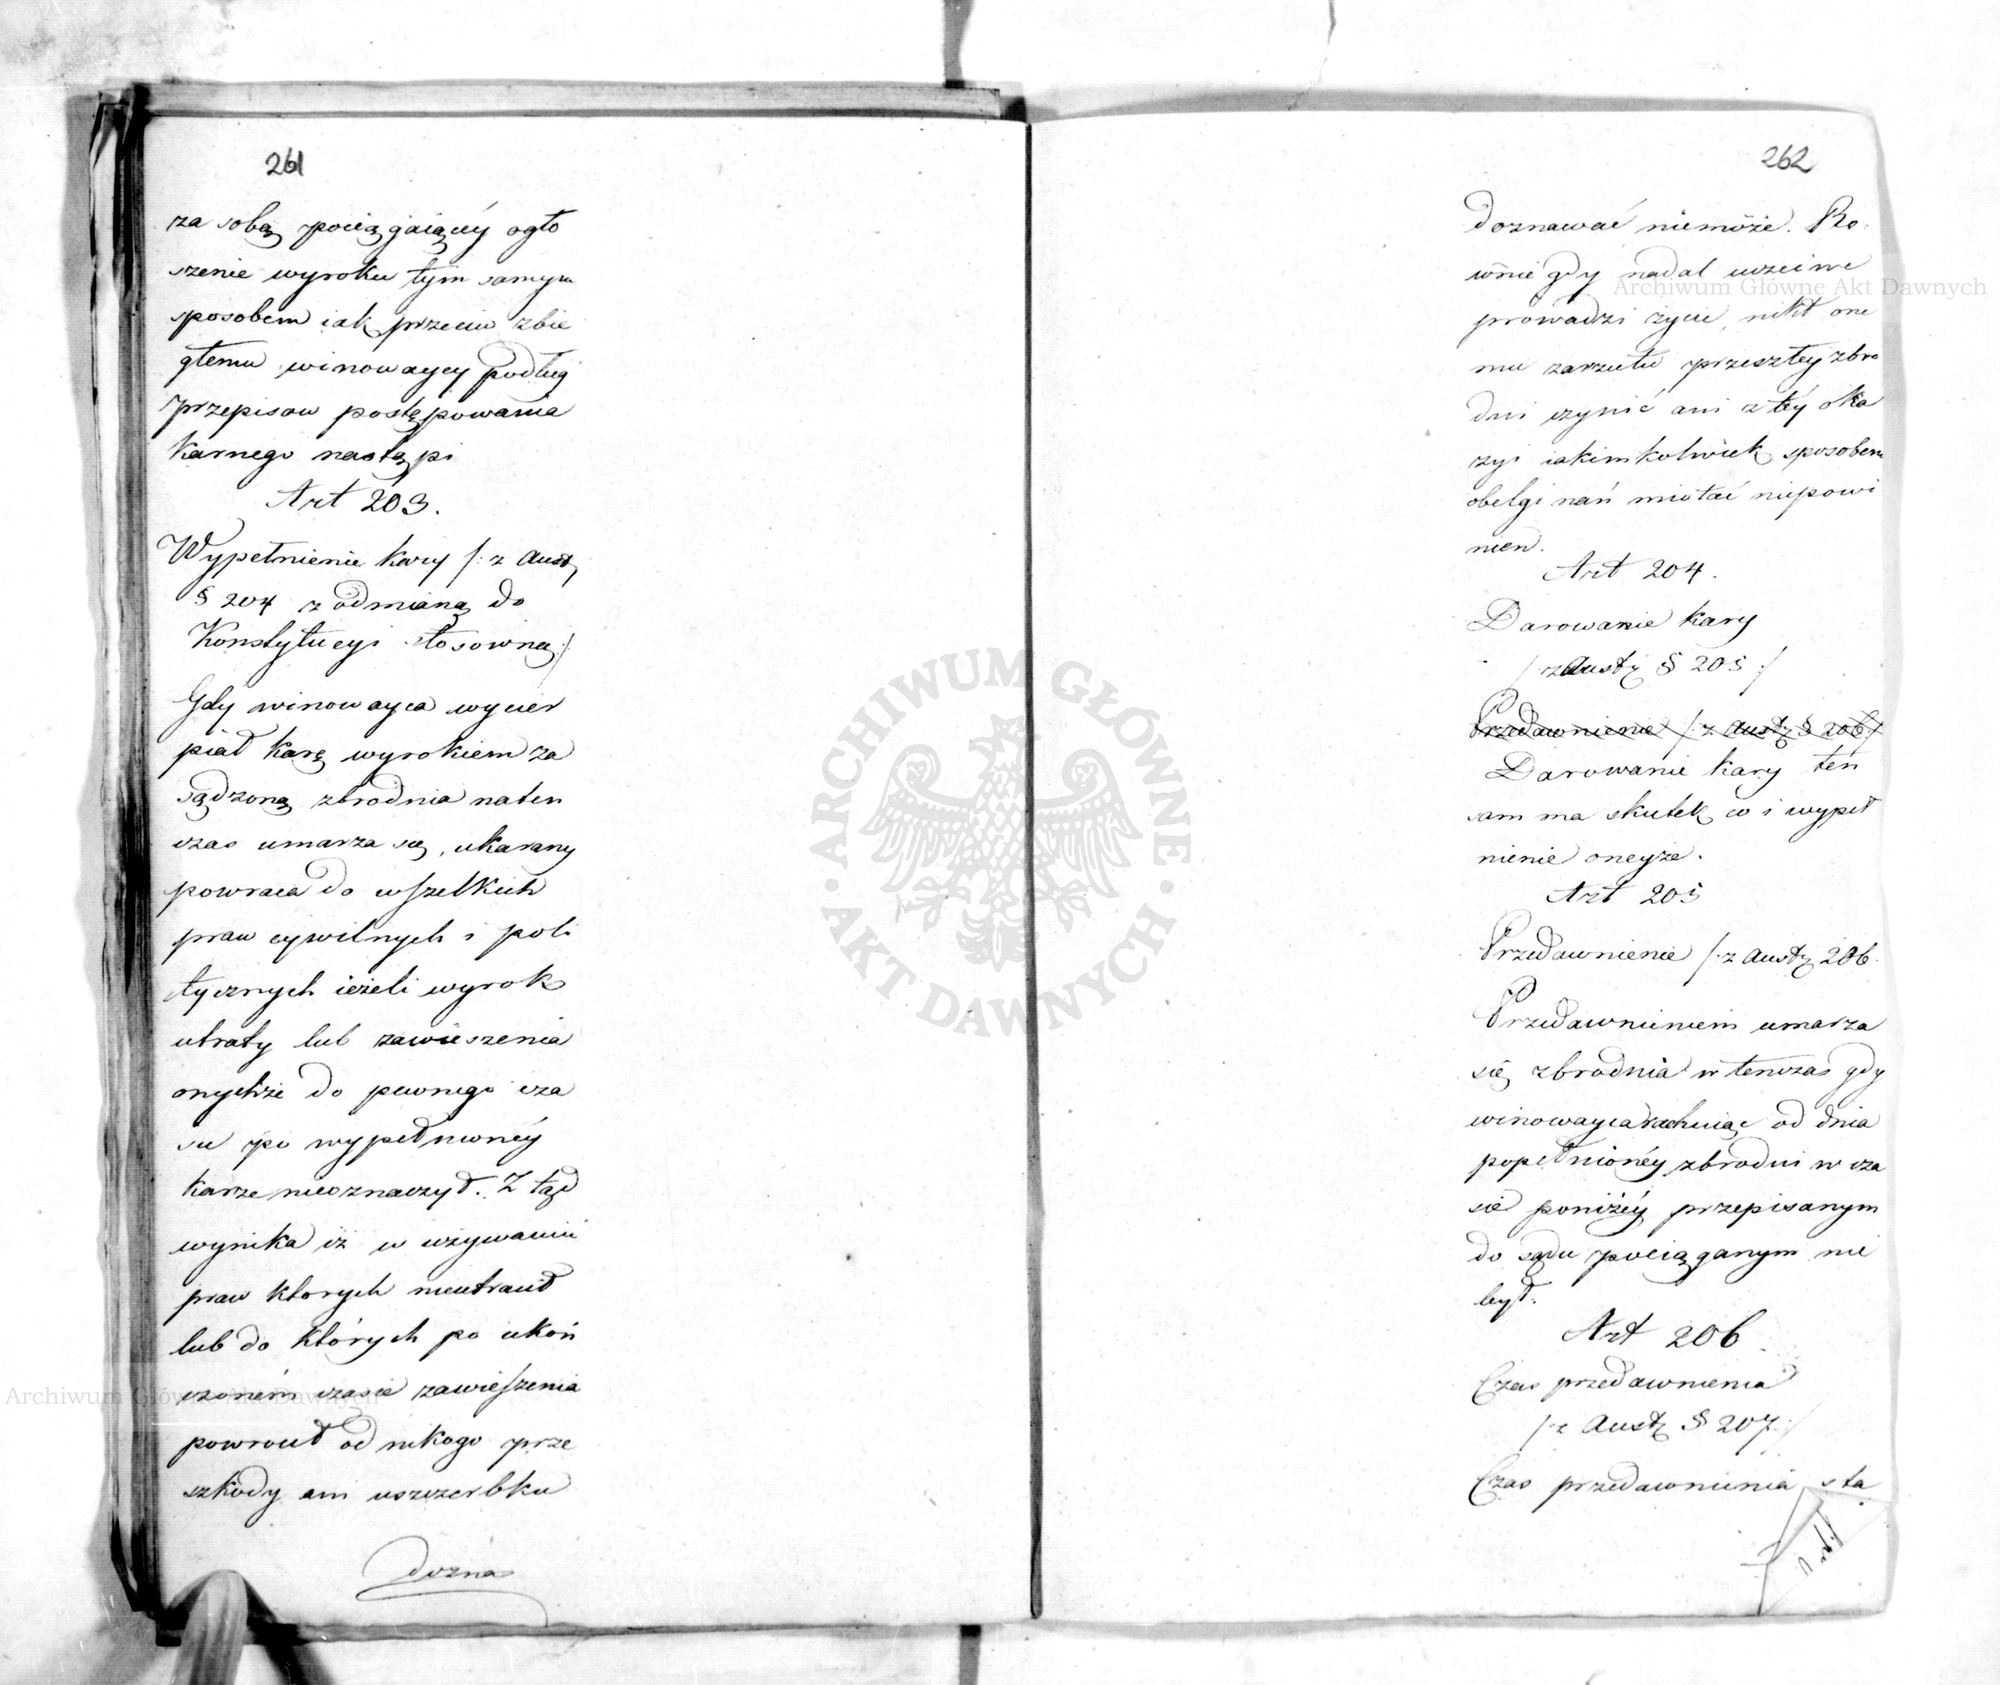 261
za sobą pociągaiącéy ogło
szenie wyroku tym samym
sposobem iak przeciw zbie
głemu winowaycy podług
przepisow postępowania
Karnego nastąpi
Art 203.
Wypełnienie kary /: z Aust
§ 204 z odmianą do
Konstytucyi stosowną :/
Gdy winowayca wycier
piał karę wyrokiem za
sądzoną zbrodnia naten
czas umarza się, ukarany
powraca do wszelkich
praw cywilnych i poli
tycznych ieżeli wyrok
utraty lub zawieszenia
onychże do pewnego cza
su po wypełnionéy
karze nieoznaczył. Z tąd
wynika iż w używaniu
praw ktorych nieutracił
lub do których po ukoń
czoném czasie zawieszenia
powrocił od nikogo prze
szkody ani uszczerbku
dozna
262
doznawać niemoże. Ro:
wnie gdy nadal uczciwe
prowadzi życie, nikt one
mu zarzutu przeszłey zbro
dni czynić ani z téy oka
zyi iakimkolwiek sposobem
obelgi nań miotać niepowi
nien.
Art 204.
Darowanie kary
/: z Aust: § 205 :/
Przedawnienie /: z Aust: § 206 :/
Darowanie kary ten
sam ma skutek co i wypeł
nienie oneyże.
Art 205
Przedawnienie /: z Aust: 206.
Przedawnieniem umarza
się zbrodnia w tenczas gdy
winowayca rachuiąc od dnia
popełnionéy zbrodni w cza
sie poniżéy przepisanym
do sądu pociąganym nie
był.
Art 206
Czas przedawnienia
/: z Aust: § 207 :/
Czas przedawnienia sta
ARCHIWUM GŁÓWNE
AKT DAWNYCH
Archiwum Główne Akt Dawnych
Archiwum Główne Akt Dawnych